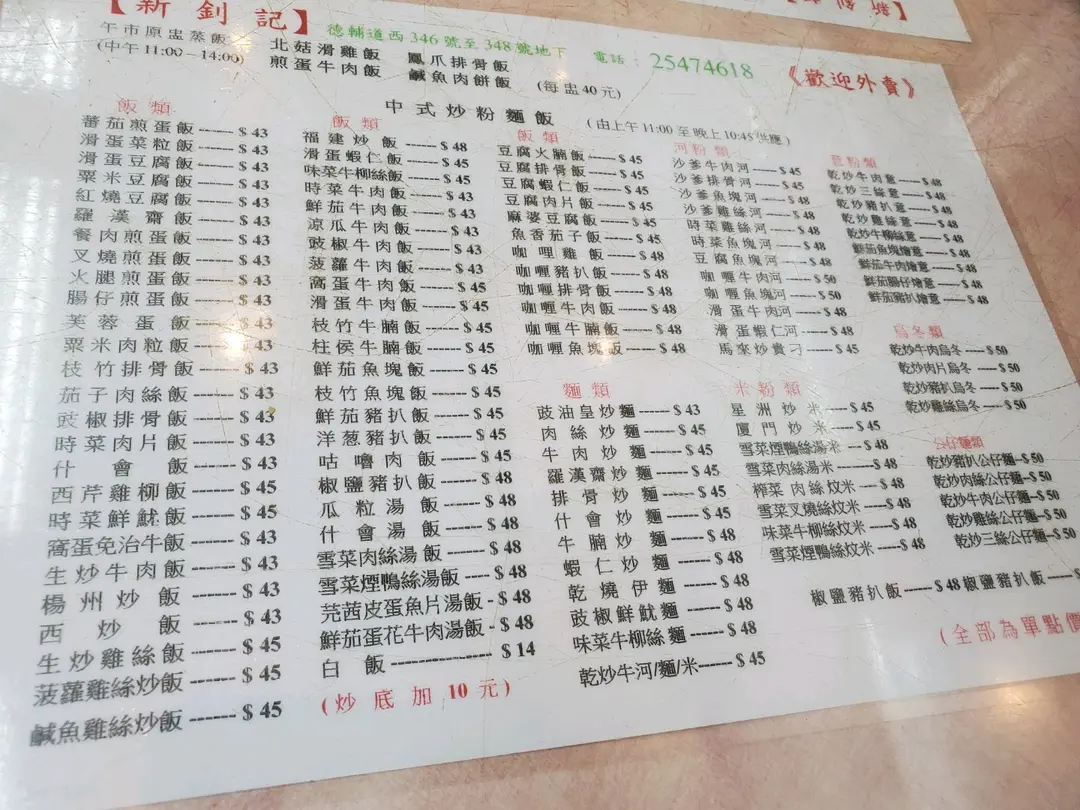 【新釗記】
德輔道西346號至348號地下 電話：25474618
《歡迎外賣》
午市原盅蒸飯
(中午11:00–14:00)
北菇滑雞飯 鳳爪排骨飯
煎蛋牛肉飯 鹹魚肉餅飯 (每盅40元)
中式炒粉麵飯 (由上午11:00至晚上10:45供應)
飯類
蕃茄煎蛋飯------$43
滑蛋菜粒飯------$43
滑蛋豆腐飯------$43
粟米豆腐飯------$43
紅燒豆腐飯------$43
羅漢齋飯------$43
餐肉煎蛋飯------$43
叉燒煎蛋飯------$43
火腿煎蛋飯------$43
腸仔煎蛋飯------$43
芙蓉蛋飯------$43
粟米肉粒飯------$43
枝竹排骨飯------$43
茄子肉絲飯------$43
豉椒排骨飯------$43
時菜肉片飯------$43
什會飯------$43
西芹雞柳飯------$45
時菜鮮魷飯------$45
窩蛋免治牛飯------$43
生炒牛肉飯------$43
楊州炒飯------$43
西炒飯------$43
生炒雞絲飯------$45
菠蘿雞絲炒飯------$45
鹹魚雞絲炒飯------$45
飯類
福建炒飯------$48
滑蛋蝦仁飯------$45
味菜牛柳絲飯------$45
時菜牛肉飯------$43
鮮茄牛肉飯------$43
涼瓜牛肉飯------$43
豉椒牛肉飯------$43
菠蘿牛肉飯------$43
窩蛋牛肉飯------$45
滑蛋牛肉飯------$45
枝竹牛腩飯------$45
柱侯牛腩飯------$45
鮮茄魚塊飯------$45
枝竹魚塊飯------$45
鮮茄豬扒飯------$45
洋葱豬扒飯------$45
咕嚕肉飯------$45
椒鹽豬扒飯------$48
瓜粒湯飯------$48
什會湯飯------$48
雪菜肉絲湯飯------$48
雪菜煙鴨絲湯飯----$48
芫茜皮蛋魚片湯飯-$48
鮮茄蛋花牛肉湯飯-$48
白飯---------------$14
(炒底加10元)
飯類
豆腐火腩飯------$45
豆腐排骨飯------$45
豆腐蝦仁飯------$45
豆腐肉片飯------$45
麻婆豆腐飯------$45
魚香茄子飯------$45
咖喱雞飯------$48
咖喱豬扒飯------$48
咖喱排骨飯------$48
咖喱牛肉飯------$48
咖喱牛腩飯------$48
咖喱魚塊飯------$48
麵類
豉油皇炒麵------$43
肉絲炒麵------$45
牛肉炒麵------$45
羅漢齋炒麵------$45
排骨炒麵------$45
什會炒麵------$45
牛腩炒麵------$48
蝦仁炒麵------$48
乾燒伊麵------$48
豉椒鮮魷麵------$48
味菜牛柳絲麵------$48
乾炒牛河/麵/米------$45
河粉類
沙爹牛肉河-----$45
沙爹排骨河-----$45
沙爹魚塊河-----$48
沙爹雞絲河-----$48
時菜雞絲河-----$48
時菜魚塊河-----$48
豆腐魚塊河-----$48
咖喱牛肉河-----$50
咖喱魚塊河-----$50
滑蛋牛肉河-----$48
滑蛋蝦仁河-----$48
馬來炒貴刁-----$45
米粉類
星洲炒米-----$45
廈門炒米-----$45
雪菜煙鴨絲湯米-----$48
雪菜肉絲湯米-----$48
榨菜肉絲炆米-----$48
雪菜叉燒絲炆米----$48
味菜牛柳絲炆米----$48
雪菜煙鴨絲炆米----$48
意粉類
乾炒牛肉意-----$48
乾炒三絲意-----$48
乾炒豬扒意-----$48
乾炒雞絲意-----$48
乾炒牛柳絲意----$48
鮮茄魚塊燴意----$48
鮮茄牛肉燴意----$48
鮮茄腸仔燴意----$48
鮮茄豬扒燴意----$48
烏冬類
乾炒牛肉烏冬-----$50
乾炒肉片烏冬-----$50
乾炒豬扒烏冬-----$50
乾炒雞絲烏冬-----$50
公仔麵類
乾炒豬扒公仔麵--$50
乾炒肉絲公仔麵--$50
乾炒牛肉公仔麵--$50
乾炒雞絲公仔麵--$50
乾炒三絲公仔麵--$50
椒鹽豬扒飯-----$48 椒鹽豬扒飯-----$
(全部為單點價